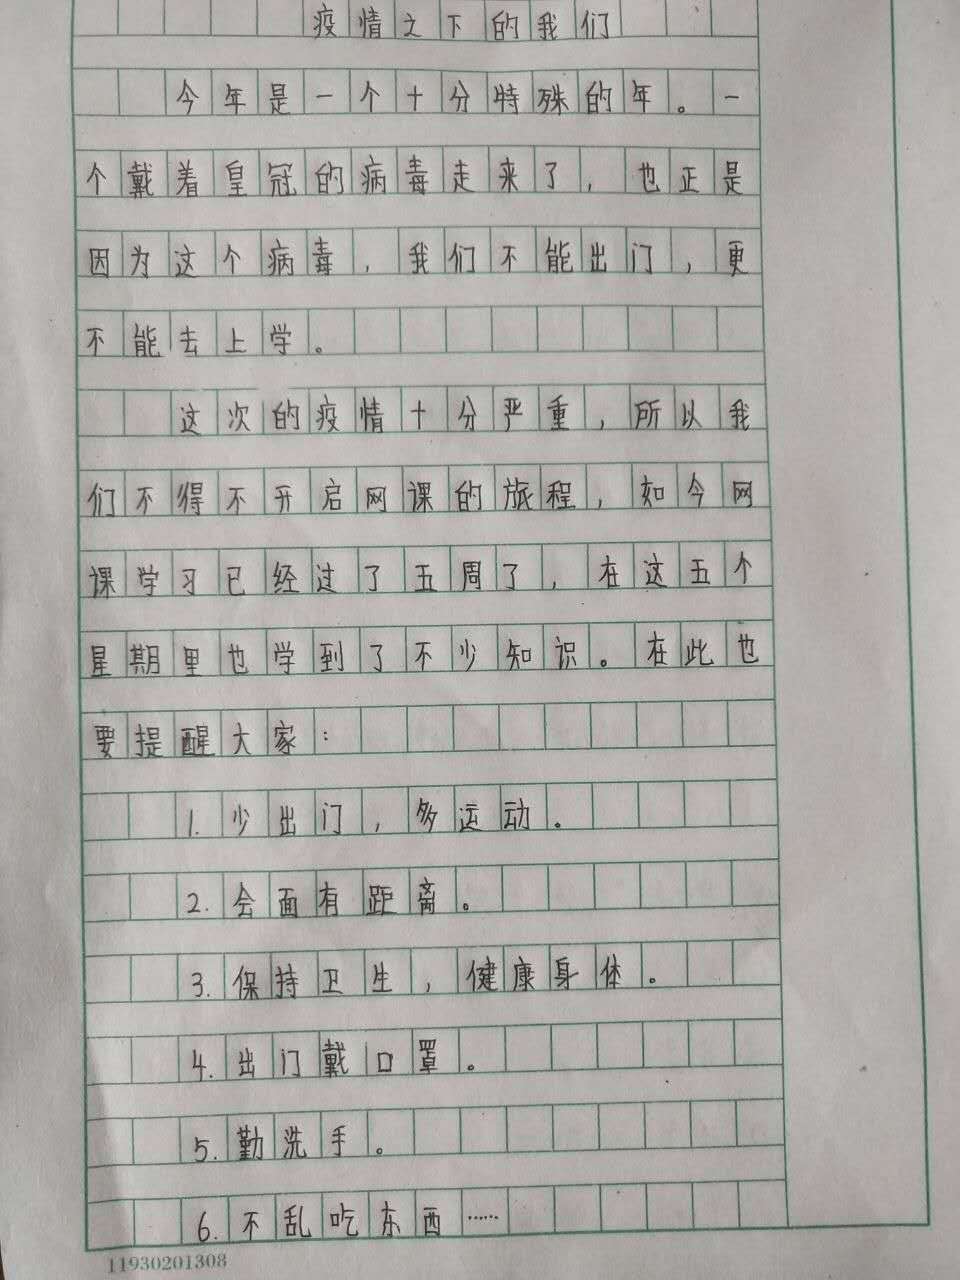 疫情之下的我们
今年是一个十分特殊的年。一
个戴着皇冠的病毒走来了，也正是
因为这个病毒，我们不能出门，更
不能去上学。
这次的疫情十分严重，所以我
们不得不开启网课的旅程，如今网
课学习已经过了五周了，在这五个
星期里也学到了不少知识。在此也
要提醒大家：
1.少出门，多运动。
2.会面有距离。
3.保持卫生，健康身体。
4.出门戴口罩。
5.勤洗手。
6.不乱吃东西……
11930201308